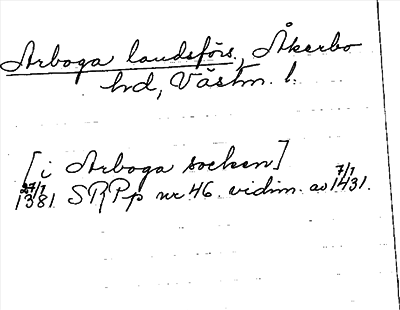 Arboga landsförs., Åkerbo
hd, Västm. l.
[i Arboga socken]
27/7 1381 SRPp nr 46 vidim. av 7/7 1431.